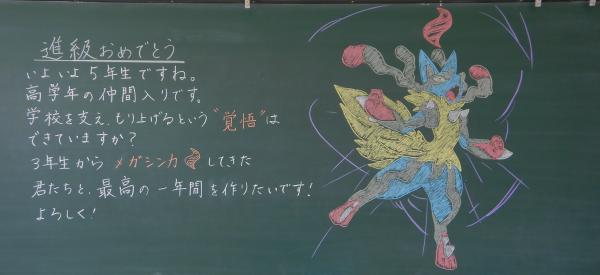 進級おめでとう
いよいよ5年生ですね。
高学年の仲間入りです。
学校を支え、もり上げるという"覚悟"は
できていますか?
3年生からメガシンカしてきた
君たちと、最高の一年間を作りたいです!
よろしく!